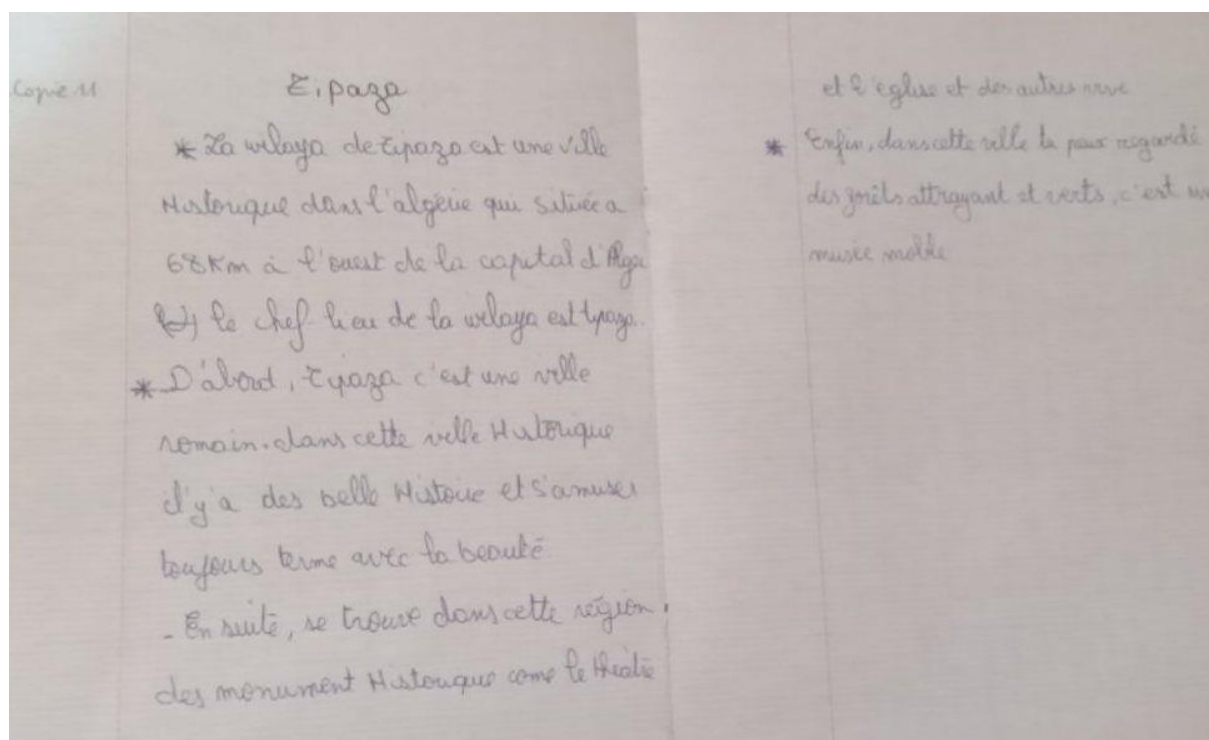 Copie 11
Tipaza
* La wilaya de tipaza est une ville
Historique dans l'algérie qui située a
68 Km à l'ouest de la capital d'Alge
le chef lieu de la wilaya est tipaza.
* D'abord, Tipaza c'est une ville
romain. dans cette ville Historique
il y'a des belle Histoire et s'amuser
toujours avec la beauté
- En suite, se trouve dans cette région,
des monument Historique come le théatre
et l'eglise et des autres
* Enfin, dans cette ville tu peux regardé
des forêts attrayant et verts, c'est un
musée